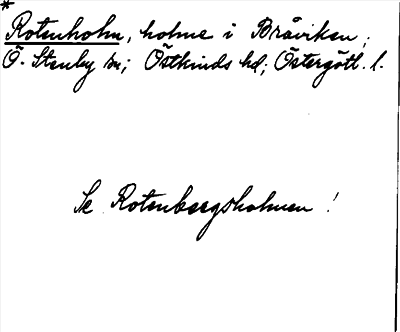 *
Rotenholm, holme i Bråviken;
Ö. Stenby sn; Östkinds hd; Östergötl. l.
Se Rotenbergsholmen!